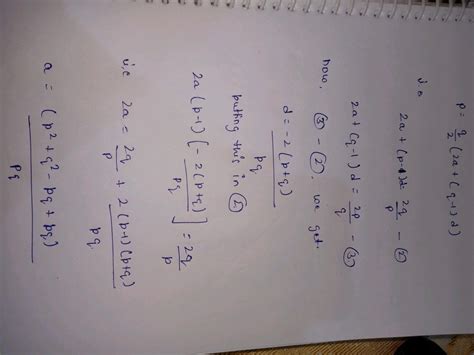 p = q/2 (2a + (q-1) d)
i.e
2a + (p-1)d 2q/p - ②
2a + (q-1) d = 2p/q - ③
now, ③ - ②, we get.
d = -2 (p+q) / pq
putting this in ②
2a (p-1) [ -2 (p+q) / pq ] = 2q/p
i.e 2a = 2q/p + 2 (p-1) (p+q) / pq
a = (p² + q² - pq + pq) / pq